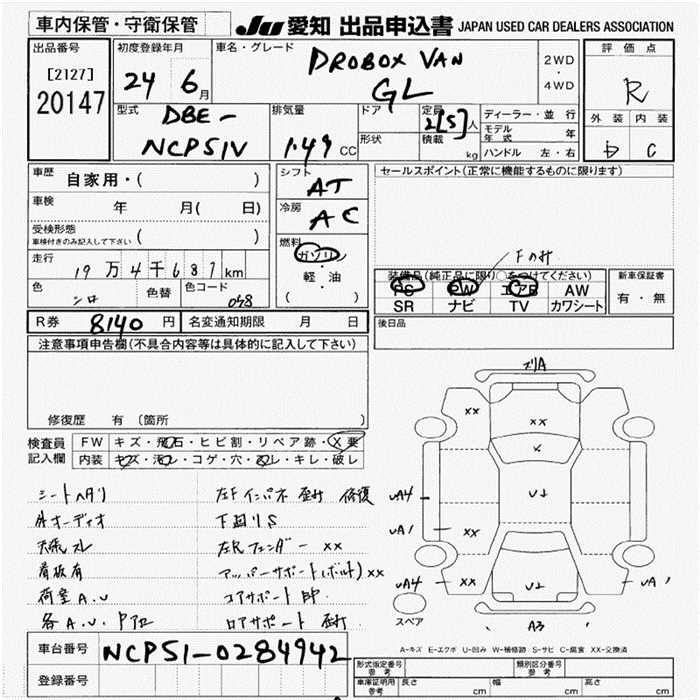 車内保管・守衛保管
JU 愛知 出品申込書 JAPAN USED CAR DEALERS ASSOCIATION
出品番号
[2127]
20147
初度登録年月
24 6月
車名・グレード
PROBOX VAN
GL
2WD
・
4WD
評価点
R
外装 内装
D C
型式
DBE-
NCP51V
排気量
1.49 CC
ドア
形状
定員
2[5]人
積載
kg
ディーラー・並行
モデル年式 年
ハンドル 左・右
車歴 自家用・( )
車検 年 月( 日)
受検形態
車検付きのみ記入して下さい ( )
走行
19万4千687km
色
シロ
色替
色コード
058
シフト
AT
冷房
AC
燃料
ガソリン
軽・油
( )
セールスポイント(正常に機能するものに限ります)
Fのみ
装備品(純正品に限り○をつけてください)
PS PW エアB AW
SR ナビ TV カワシート
新車保証書
有・無
R券 8140 円
名変通知期限 月 日
後日品
注意事項申告欄(不具合内容等は具体的に記入して下さい)
修復歴 有 (箇所 )
検査員
記入欄
FW キズ・飛石・ヒビ割・リペア跡・X要
内装 キズ・汚レ・コゲ・穴・スレ・キレ・破レ
シートヘタリ
外オーディオ
天張スレ
看板有
荷室A.U
各A.U.
左Fインパネ 修復
下回りS
左Rフェンダー XX
アッパーサポート(ボルト)XX
コアサポート
ロアサポート
ズリA
XX
XX
X
UA4
U1
UA1
XX
UA4
XX
U2
UA1
A3
スペア
A-キズ E-エクボ U-凹み W-補修跡 S-サビ C-腐食 XX-交換済
車台番号 NCP51-0284942
登録番号
形式指定番号
参考
類別区分番号
参考
車庫証明用
参考
長さ cm
幅 cm
高さ cm